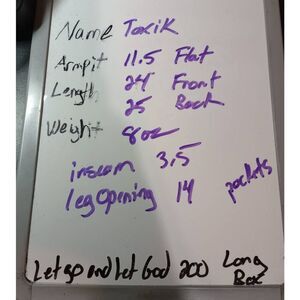 Name Toxik
Armpit 11.5 Flat
Length 24 Front
25 Back
Weight 8oz
inseam 3.5
leg Opening 14 pockets
Let go and Let God 200 Long Box